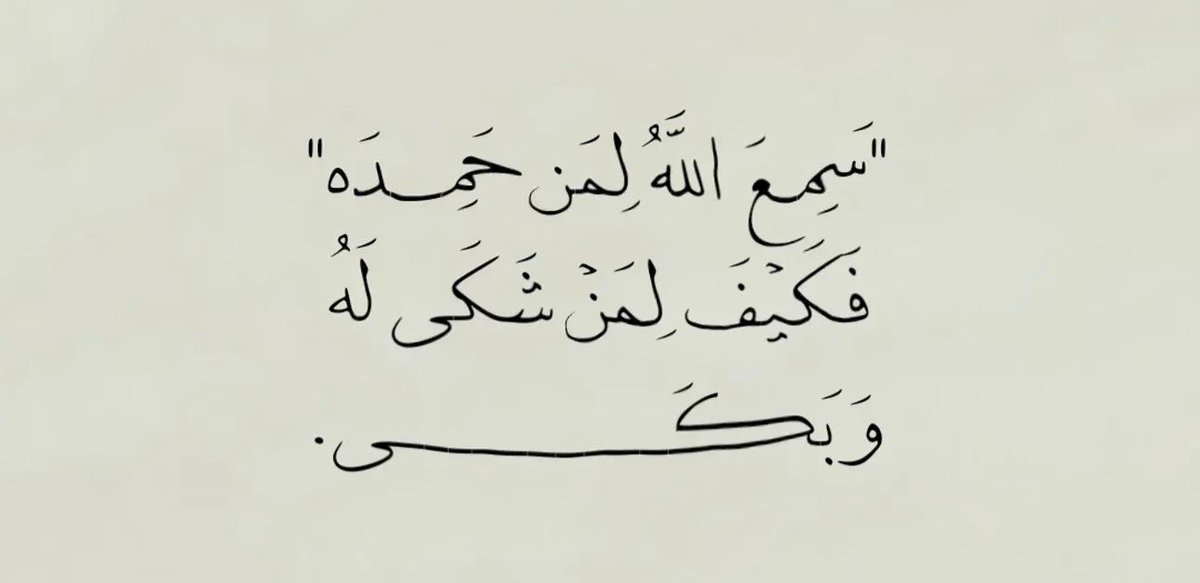 "سَمِعَ اللَّهُ لِمَن حَمِدَه"
فَكَيْفَ لِمَنْ شَكَى لَهُ
وَبَكَى.